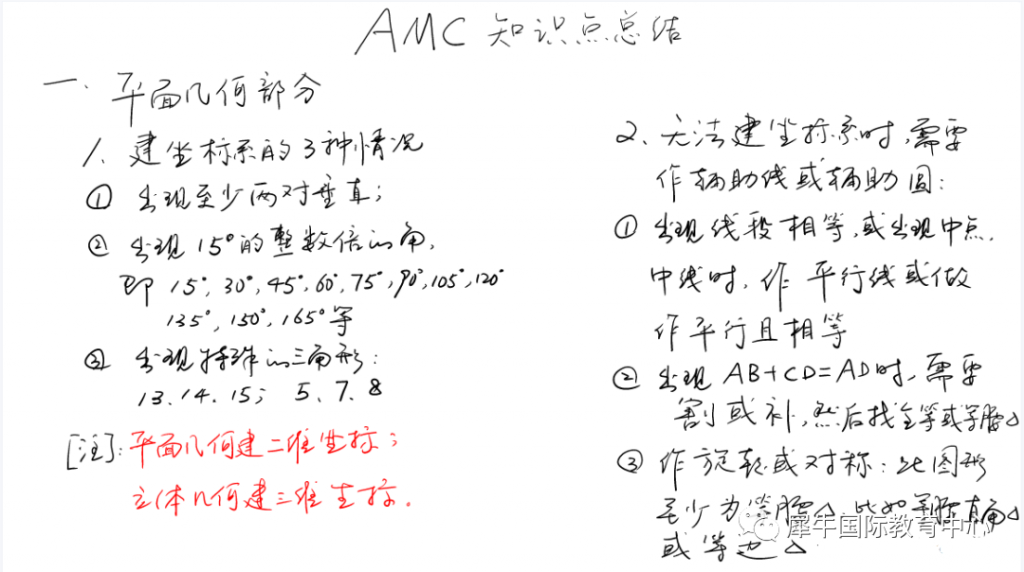 AMC 知识点总结
一. 平面几何部分
1. 建坐标系的3种情况
① 出现至少两对垂直;
② 出现15°的整数倍的角,
即 15°, 30°, 45°, 60°, 75°, 90°, 105°, 120°
135°, 150°, 165° 等
③ 出现特殊的三角形:
13、14、15; 5、7、8
[注]: 平面几何建二维坐标;
立体几何建三维坐标.
2、无法建坐标系时, 需要
作辅助线或辅助圆:
① 出现线段相等, 或出现中点,
中线时, 作平行线或做
作平行且相等
② 出现 AB+CD=AD时, 需要
割或补, 然后找全等或等腰△
③ 作旋转或对称: 此图形
至少为等腰△, 比如等腰直角△
或等边△
犀牛国际教育中心